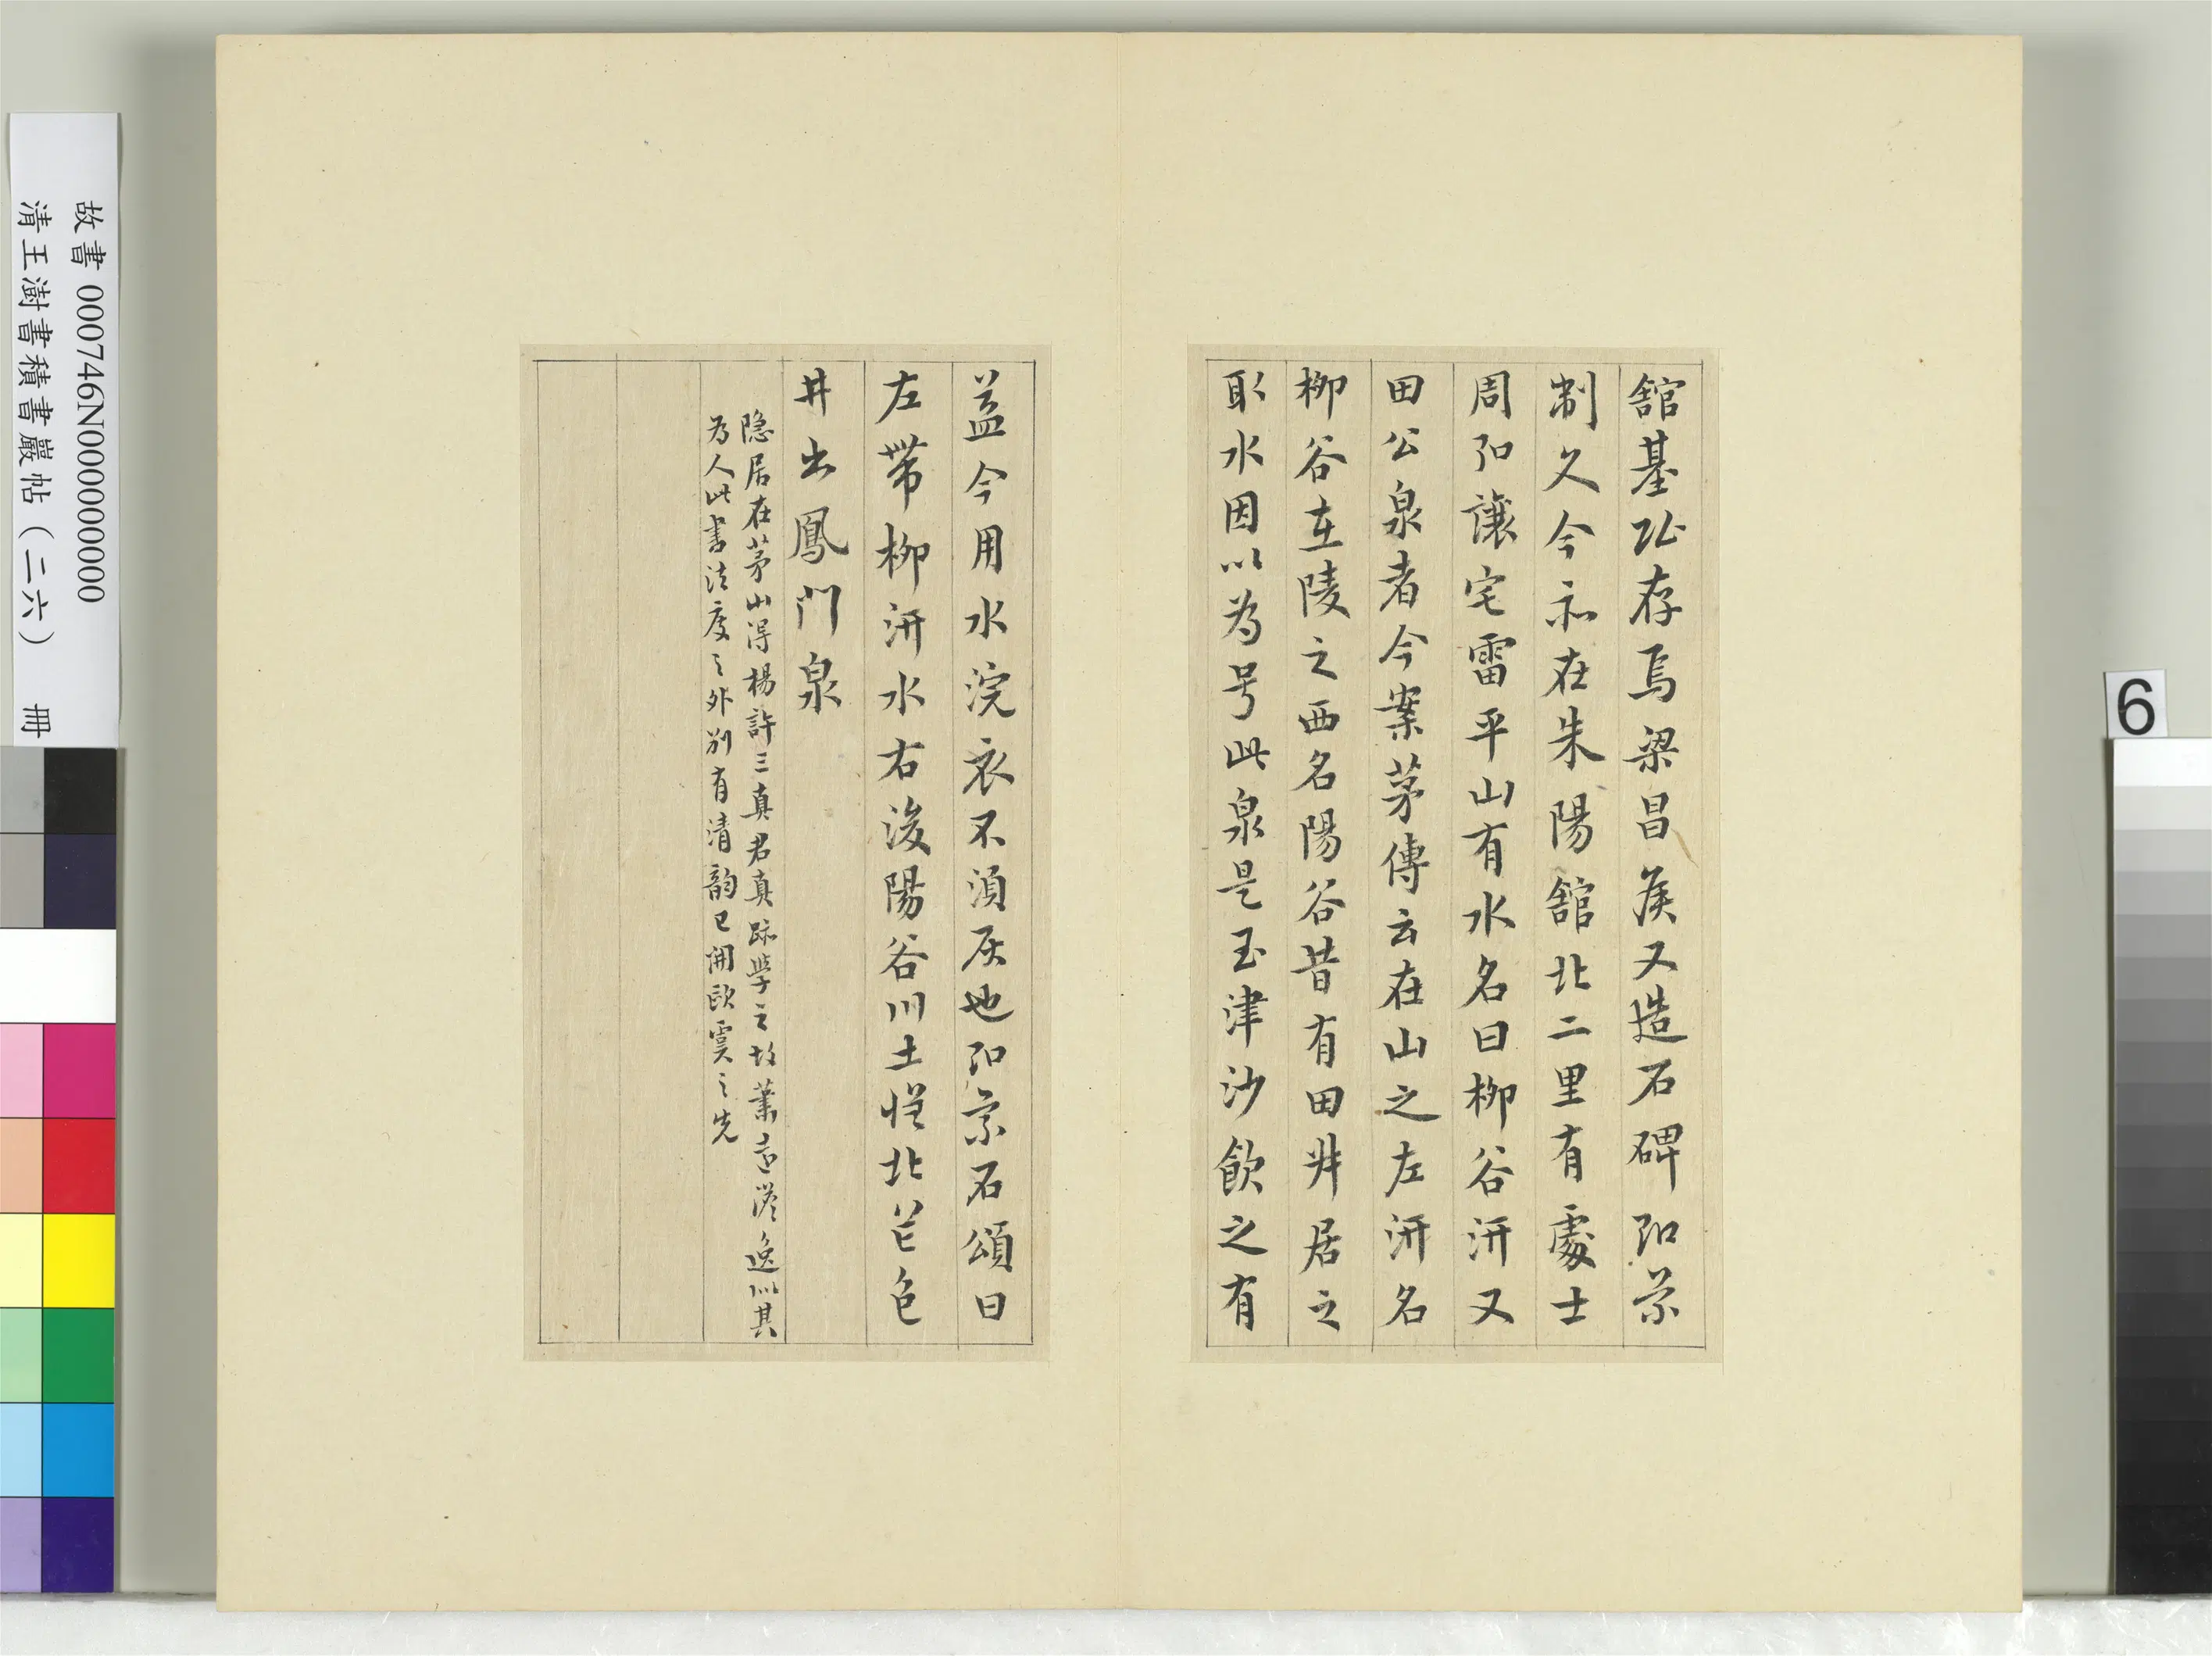 舘基阯存焉梁昌侯又造石碑即景
制久今亦在朱陽舘北二里有處士
周即讓宅雷平山有水名曰柳谷汧又
田公泉者今案茅傳云在山之左汧名
柳谷在陵之西名陽谷昔有田丼居之
取水因以為号此泉是玉津沙飲之有
益今用水浣衣不須灰也即景石頌曰
左帶柳汧水右浚陽谷川土恱北芒色
井出鳳門泉
隐居在茅山得楊許三真君真跡學之故蕭遠澹逸似其
為人此書法度之外別有清韵已開歐虞之先
故書 000746N000000000
清王澍書積書巖帖（二六） 冊
6